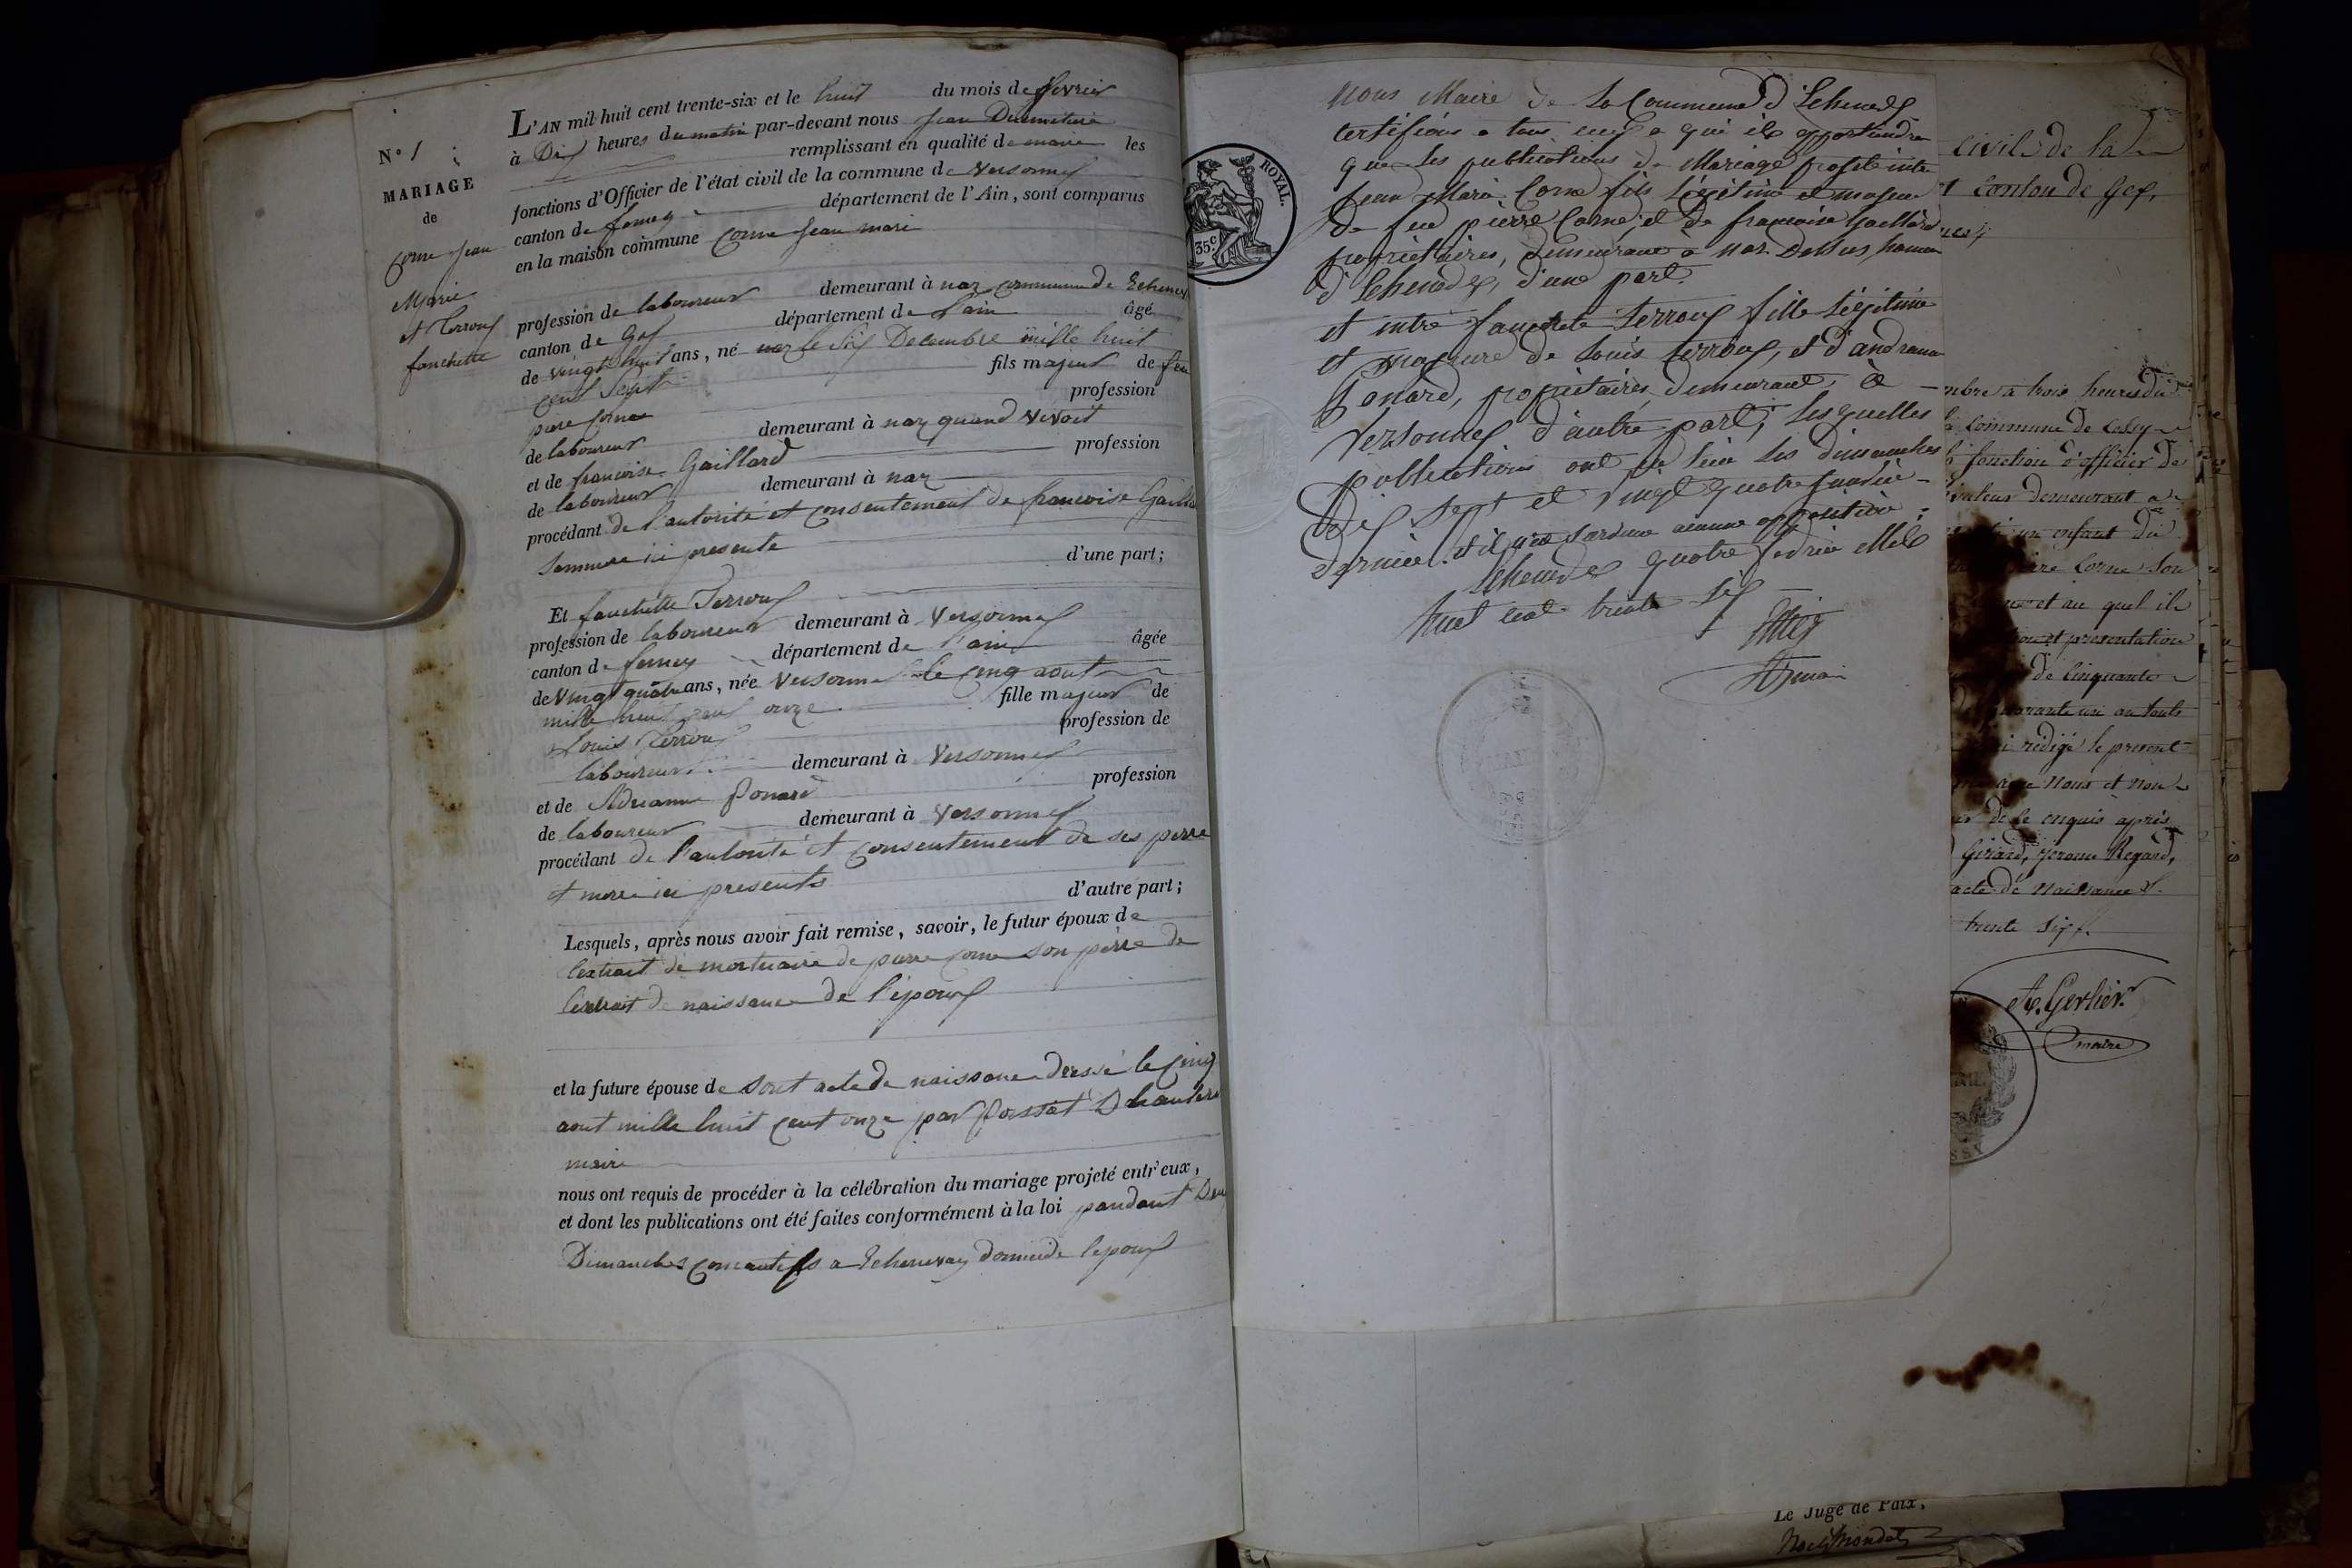 N° 1
MARIAGE
de
Corne Jean
Marie
et Terroux
fanchette
L'AN mil huit cent trente-six et le huit du mois de fevrier
à Dix heures du matin par-devant nous Jean
remplissant en qualité de maire les
fonctions d'Officier de l'état civil de la commune de Versonnex
canton de ferney département de l'Ain, sont comparus
en la maison commune Corne Jean mari
profession de laboureur demeurant à naz commune de Echenevex
canton de Gex département de l'ain âgé
de vingt huit ans, né naz le six Decembre mille huit
cent sept fils majeur de feu
piere Corne profession
de laboureur demeurant à naz quand vivoit
et de francoise Gaillard profession
de laboureur demeurant à naz
procédant de l'autorité et consentement de francoise Gaillard
sa mere ici presente d'une part;
Et fanchette Terroux
profession de laboureur demeurant à Versonnex
canton de ferney département de l'ain âgée
de vingt quatre ans, née Versonnex le cinq aout
mille huit cent onze fille majeur de
Louis Terroux profession de
laboureur demeurant à Versonnex
et de Adrianne Ponard profession
de laboureur demeurant à Versonnex
procédant de l'autorité et consentement de ses perre
et merre ici presents d'autre part;
Lesquels, après nous avoir fait remise, savoir, le futur époux de
l'extrait de mortuaire de pierre Corne son père de
l'extrait de naissance de l'epoux
et la future épouse de sont acte de naissance dressé le cinq
aout mille huit cent onze par
maire
nous ont requis de procéder à la célébration du mariage projeté entr'eux,
et dont les publications ont été faites conformément à la loi pandant Deux
Dimanches consecutifs a Echenevex domicile l'epoux
ROYAL.
35c
Nous Maire de la Commune d'Echenevex
certifions a tous ceux a qui il appartiendra
que les publications de Mariage projeté entre
Jean Marie Corne fils légitime et majeur
de feu pierre Corne, et de francoise Gaillard
propriétaires, demeurant a Naz-Dessus hameau
d'Echenevex, d'une part.
et entre fanchete Terroux fille légitime
et majeure de Louis terroux, et d'andreanne
Ponard, propriétaires demeurant à
Versonnex d'autre part; lesquelles
publications ont eu lieu les dimanches
Dix sept et vingt quatre janvier
dernier. et il n'est survenu aucune opposition.
Echenevex quatre fevrier Mil
huit cent trente six
civil de la
canton de Gex,
mbre à trois heures du
commune de Cessy
fonction d'officier de
demeurant a
un enfant du
Corne son
et au quel il
et presentation
de cinquante
quarante un an touts
rédigé le present
avec Nous et non
de le enquis après
Girard, Jerome Regard,
acte de Naissance
trente six.
A. Gerlier
maire
Le Juge de Paix,